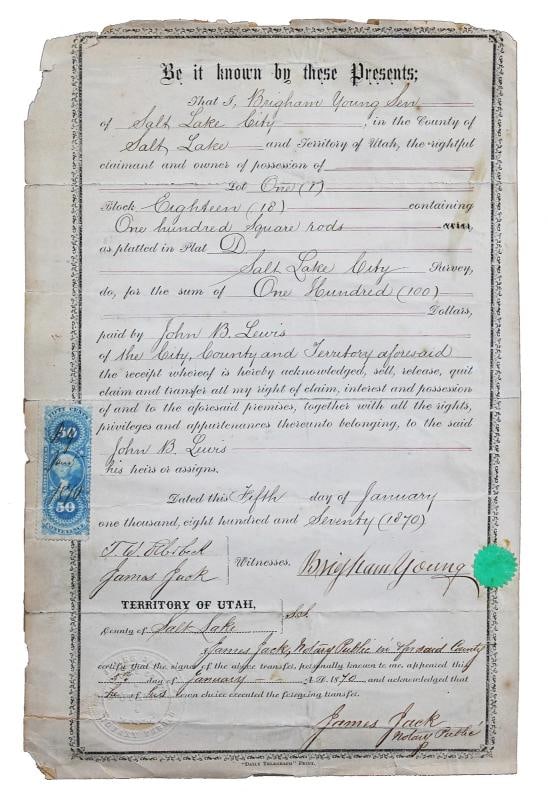 Be it known by these Presents;
That I, Brigham Young Sen
of Salt Lake City, in the County of
Salt Lake and Territory of Utah, the rightful
claimant and owner of possession of
Lot One (1)
Block Eighteen (18) containing
One hundred Square rods
as platted in Plat D
Salt Lake City Survey,
do, for the sum of One Hundred (100)
Dollars,
paid by John B. Lewis
of the City, County and Territory aforesaid
the receipt whereof is hereby acknowledged, sell, release, quit
claim and transfer all my right of claim, interest and possession
of and to the aforesaid premises, together with all the rights,
privileges and appurtenances thereunto belonging, to the said
John B. Lewis
his heirs or assigns.
50
1870
50
Dated this Fifth day of January
one thousand, eight hundred and Seventy (1870)
T. W. Ellerbeck
James Jack
Witnesses.
Brigham Young
TERRITORY OF UTAH,
County of Salt Lake
I James Jack, Notary Public in & for said County
certify that the signer of the above transfer, personally known to me, appeared this
5th day of January A.D. 1870 and acknowledged that
he of his own choice executed the foregoing transfer.
James Jack
Notary Public
"DAILY TELEGRAPH" PRINT.